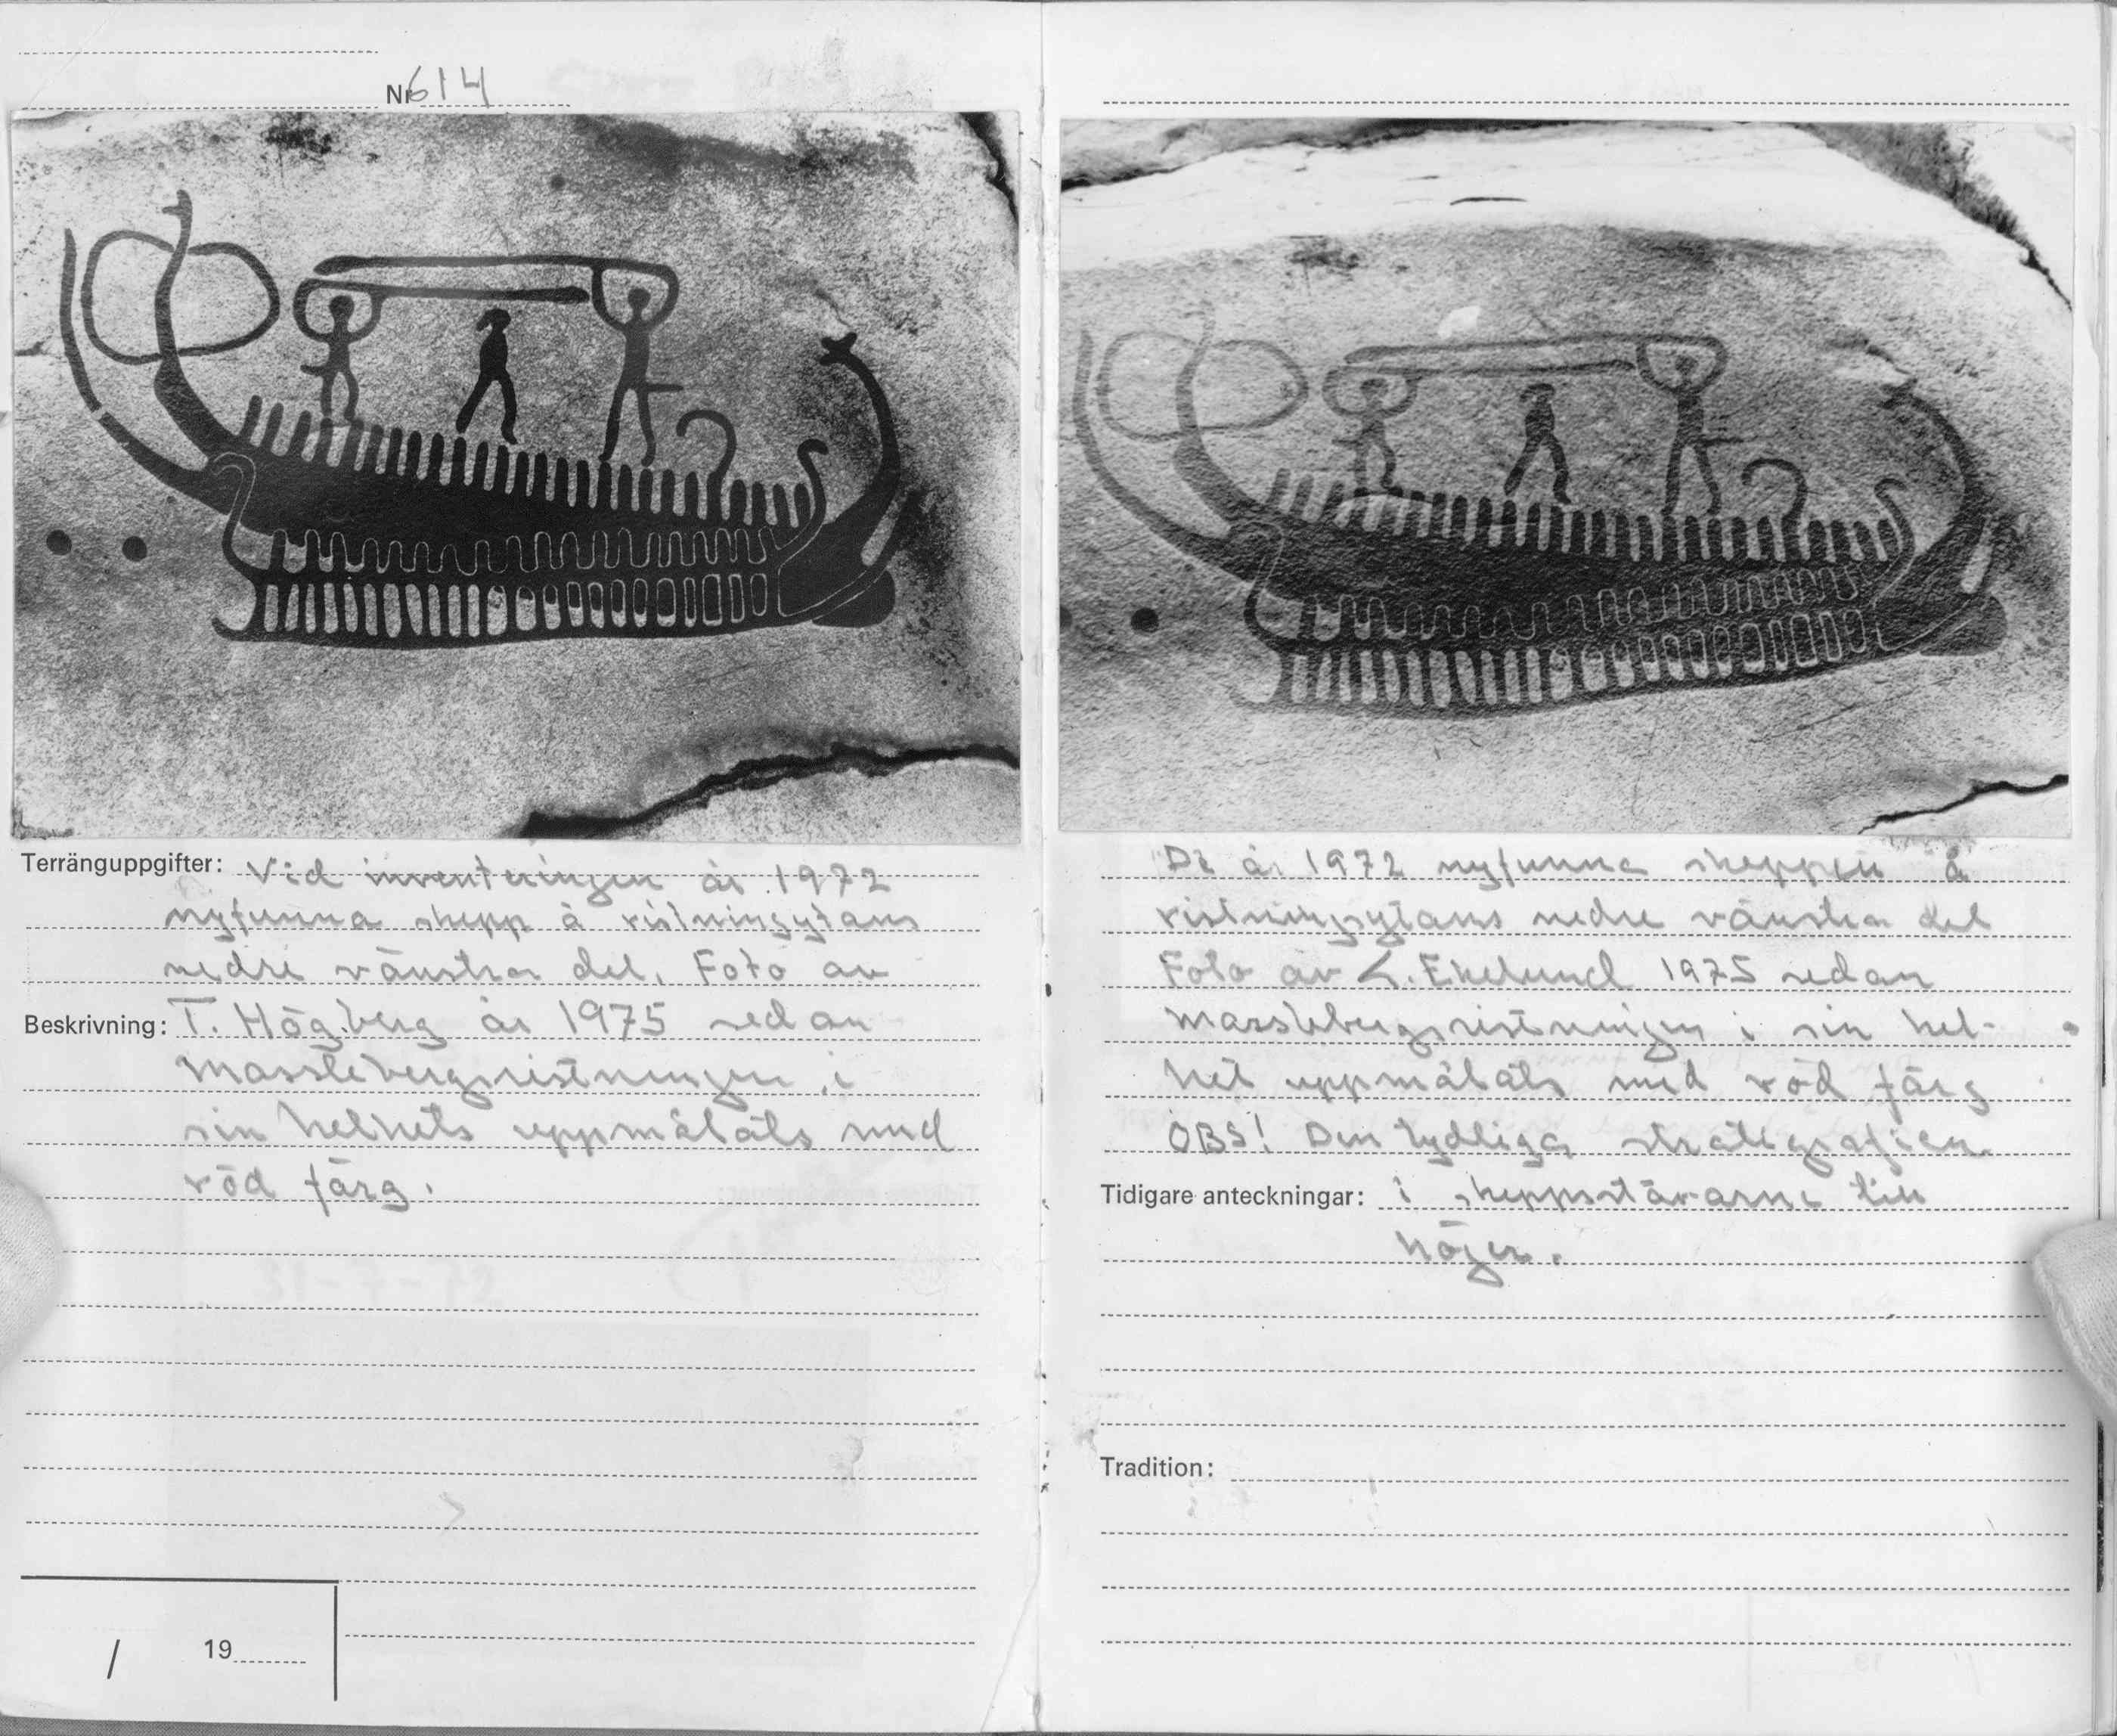 Nr 614
Terränguppgifter: Vid inventeringen år 1972
nyfunna skepp å ristningsytans
nedre vänstra del. Foto av
Beskrivning: T. Högberg år 1975 sedan
Masslebergsristningen i
sin helhets uppmålats med
röd färg.
/ 19
De år 1972 nyfunna skeppen å
ristningsytans nedre vänstra del
Foto av L. Ekelund 1975 sedan
Masslebergsristningen i sin hel-
het uppmålats med röd färg
OBS! Den tydliga stratigrafien
Tidigare anteckningar: i skeppsstävarne till
höger.
Tradition: